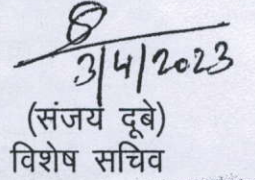 3/4/2023
(संजय दूबे)
विशेष सचिव